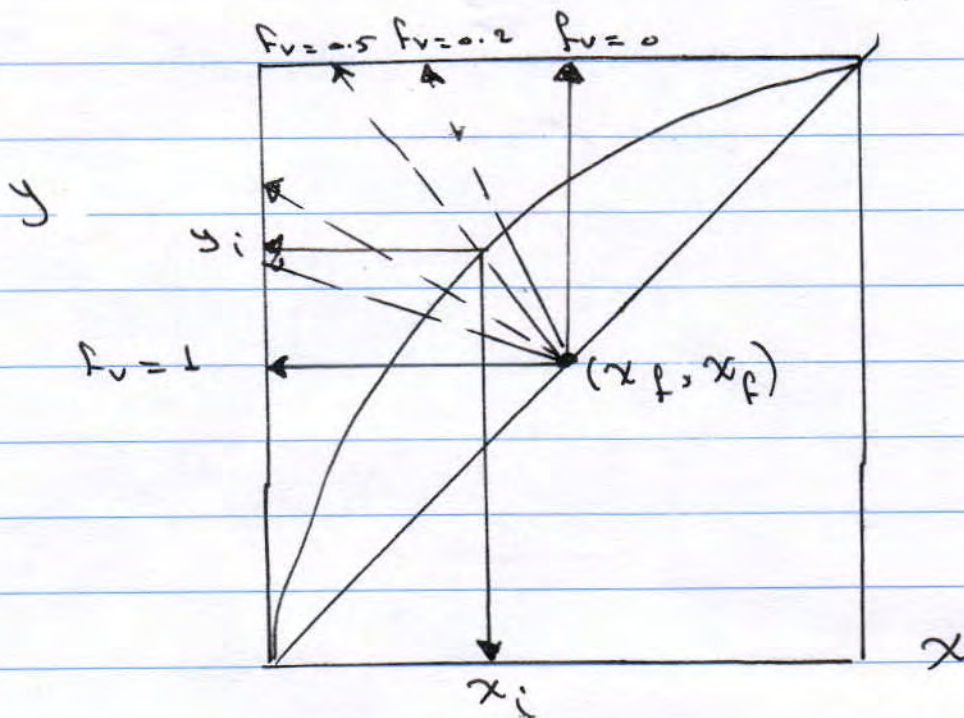 fv=0.5 fv=0.2 fv=0
y
yi
fv=1
(xf, xf)
x
xi